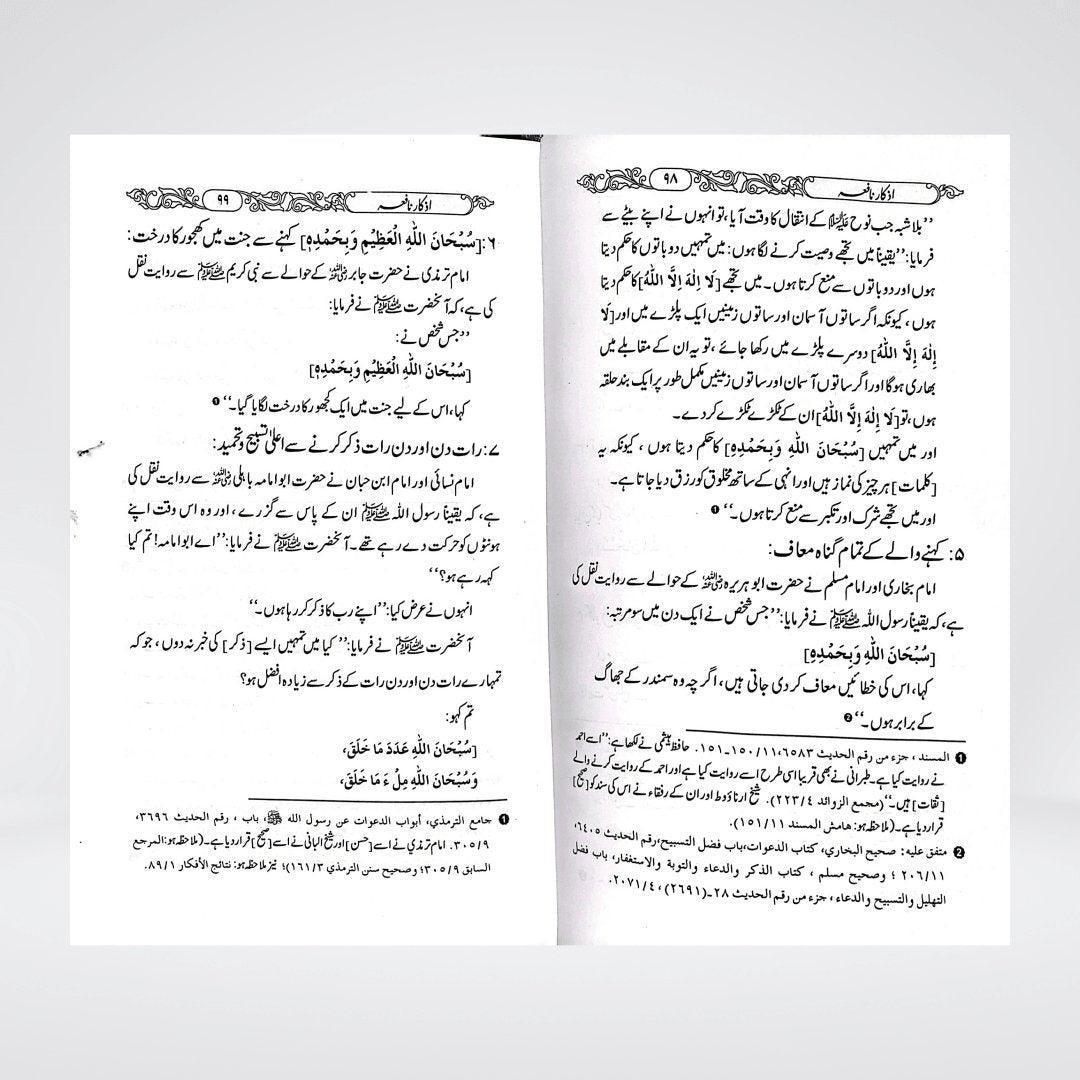 اذکار نافعہ
۹۸
”بلاشبہ جب نوح علیہ السلام کے انتقال کا وقت آیا، تو انہوں نے اپنے بیٹے سے
فرمایا: ”یقیناً میں تجھے وصیت کرنے لگا ہوں: میں تمہیں دو باتوں کا حکم دیتا
ہوں اور دو باتوں سے منع کرتا ہوں۔ میں تجھے [لَا إِلٰهَ إِلَّا اللّٰهُ] کا حکم دیتا
ہوں، کیونکہ اگر ساتوں آسمان اور ساتوں زمینیں ایک پلڑے میں اور [لَا
إِلٰهَ إِلَّا اللّٰهُ] دوسرے پلڑے میں رکھا جائے، تو یہ ان کے مقابلے میں
بھاری ہوگا اور اگر ساتوں آسمان اور ساتوں زمینیں مکمل طور پر ایک بند حلقہ
ہوں، تو [لَا إِلٰهَ إِلَّا اللّٰهُ] ان کے ٹکڑے ٹکڑے کردے۔
اور میں تمہیں [سُبْحَانَ اللّٰهِ وَبِحَمْدِهِ] کا حکم دیتا ہوں، کیونکہ یہ
[کلمات] ہر چیز کی نماز ہیں اور انہی کے ساتھ مخلوق کو رزق دیا جاتا ہے۔
اور میں تجھے شرک اور تکبر سے منع کرتا ہوں۔“ ❶
۵: کہنے والے کے تمام گناہ معاف:
امام بخاری اور امام مسلم نے حضرت ابو ہریرہ رضی اللہ عنہ کے حوالے سے روایت نقل کی
ہے، کہ یقیناً رسول اللہ ﷺ نے فرمایا: ”جس شخص نے ایک دن میں سو مرتبہ:
[سُبْحَانَ اللّٰهِ وَبِحَمْدِهِ]
کہا، اس کی خطائیں معاف کر دی جاتی ہیں، اگرچہ وہ سمندر کے جھاگ
کے برابر ہوں۔“ ❷
❶ المسند، جزء من رقم الحديث ٦٥٨٣، ١١/ ١٥٠۔١٥١۔ حافظ ہیثمی نے لکھا ہے: ”اسے احمد
نے روایت کیا ہے۔ طبرانی نے بھی قریباً اسی طرح اسے روایت کیا ہے اور احمد کے روایت کرنے والے
[ثقات] ہیں۔“ (مجمع الزوائد ٤/ ٢٢٣)۔ شیخ ارناؤوط اور ان کے رفقاء نے اس کی سند کو [صحیح]
قرار دیا ہے۔ (ملاحظہ ہو: هامش المسند ١١/ ١٥١)۔
❷ متفق علیہ: صحيح البخاري، كتاب الدعوات، باب فضل التسبيح، رقم الحديث ٦٤٠٥،
١١/ ٢٠٦؛ وصحيح مسلم، كتاب الذكر والدعاء والتوبة والاستغفار، باب فضل
التهليل والتسبيح والدعاء، جزء من رقم الحديث ٢٨۔ (٢٦٩١)، ٤/ ٢٠٧١۔
اذکار نافعہ
۹۹
۶: [سُبْحَانَ اللّٰهِ الْعَظِيْمِ وَبِحَمْدِهِ] کہنے سے جنت میں کھجور کا درخت:
امام ترمذی نے حضرت جابر رضی اللہ عنہ کے حوالے سے نبی کریم ﷺ سے روایت نقل
کی ہے، کہ آنحضرت ﷺ نے فرمایا:
”جس شخص نے:
[سُبْحَانَ اللّٰهِ الْعَظِيْمِ وَبِحَمْدِهِ]
کہا، اس کے لیے جنت میں ایک کھجور کا درخت لگایا گیا۔“ ❶
۷: رات دن اور دن رات ذکر کرنے سے اعلیٰ تسبیح و تحمید:
امام نسائی اور امام ابن حبان نے حضرت ابوامامہ باہلی رضی اللہ عنہ سے روایت نقل کی
ہے، کہ یقیناً رسول اللہ ﷺ ان کے پاس سے گزرے، اور وہ اس وقت اپنے
ہونٹوں کو حرکت دے رہے تھے۔ آنحضرت ﷺ نے فرمایا: ”اے ابوامامہ! تم کیا
کہہ رہے ہو؟“
انہوں نے عرض کیا: ”اپنے رب کا ذکر کر رہا ہوں۔“
آنحضرت ﷺ نے فرمایا: ”کیا میں تمہیں ایسے [ذکر] کی خبر نہ دوں، جو کہ
تمہارے رات دن اور دن رات کے ذکر سے زیادہ افضل ہو؟
تم کہو:
[سُبْحَانَ اللّٰهِ عَدَدَ مَا خَلَقَ،
وَسُبْحَانَ اللّٰهِ مِلْءَ مَا خَلَقَ،
❶ جامع الترمذي، أبواب الدعوات عن رسول الله ﷺ، باب، رقم الحديث ٣٦٩٦،
٩/ ٣٠٥۔ امام ترمذی نے اسے [حسن] اور شیخ البانی نے اسے [صحیح] قرار دیا ہے۔ (ملاحظہ ہو: المرجع
السابق ٩/ ٣٠٥؛ وصحيح سنن الترمذي ٣/ ١٦١)؛ نیز ملاحظہ ہو: نتائج الأفكار ١/ ٨٩۔